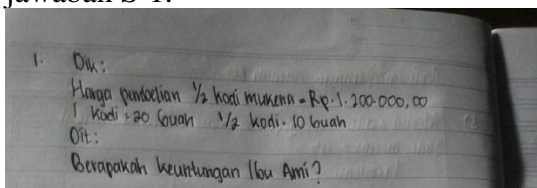 jawaban S-1.
1. Dik:
Harga pembelian 1/2 kodi mukena = Rp. 1.200.000,00
1 kodi = 20 buah 1/2 kodi = 10 buah
Dit:
Berapakah keuntungan Ibu Ami?